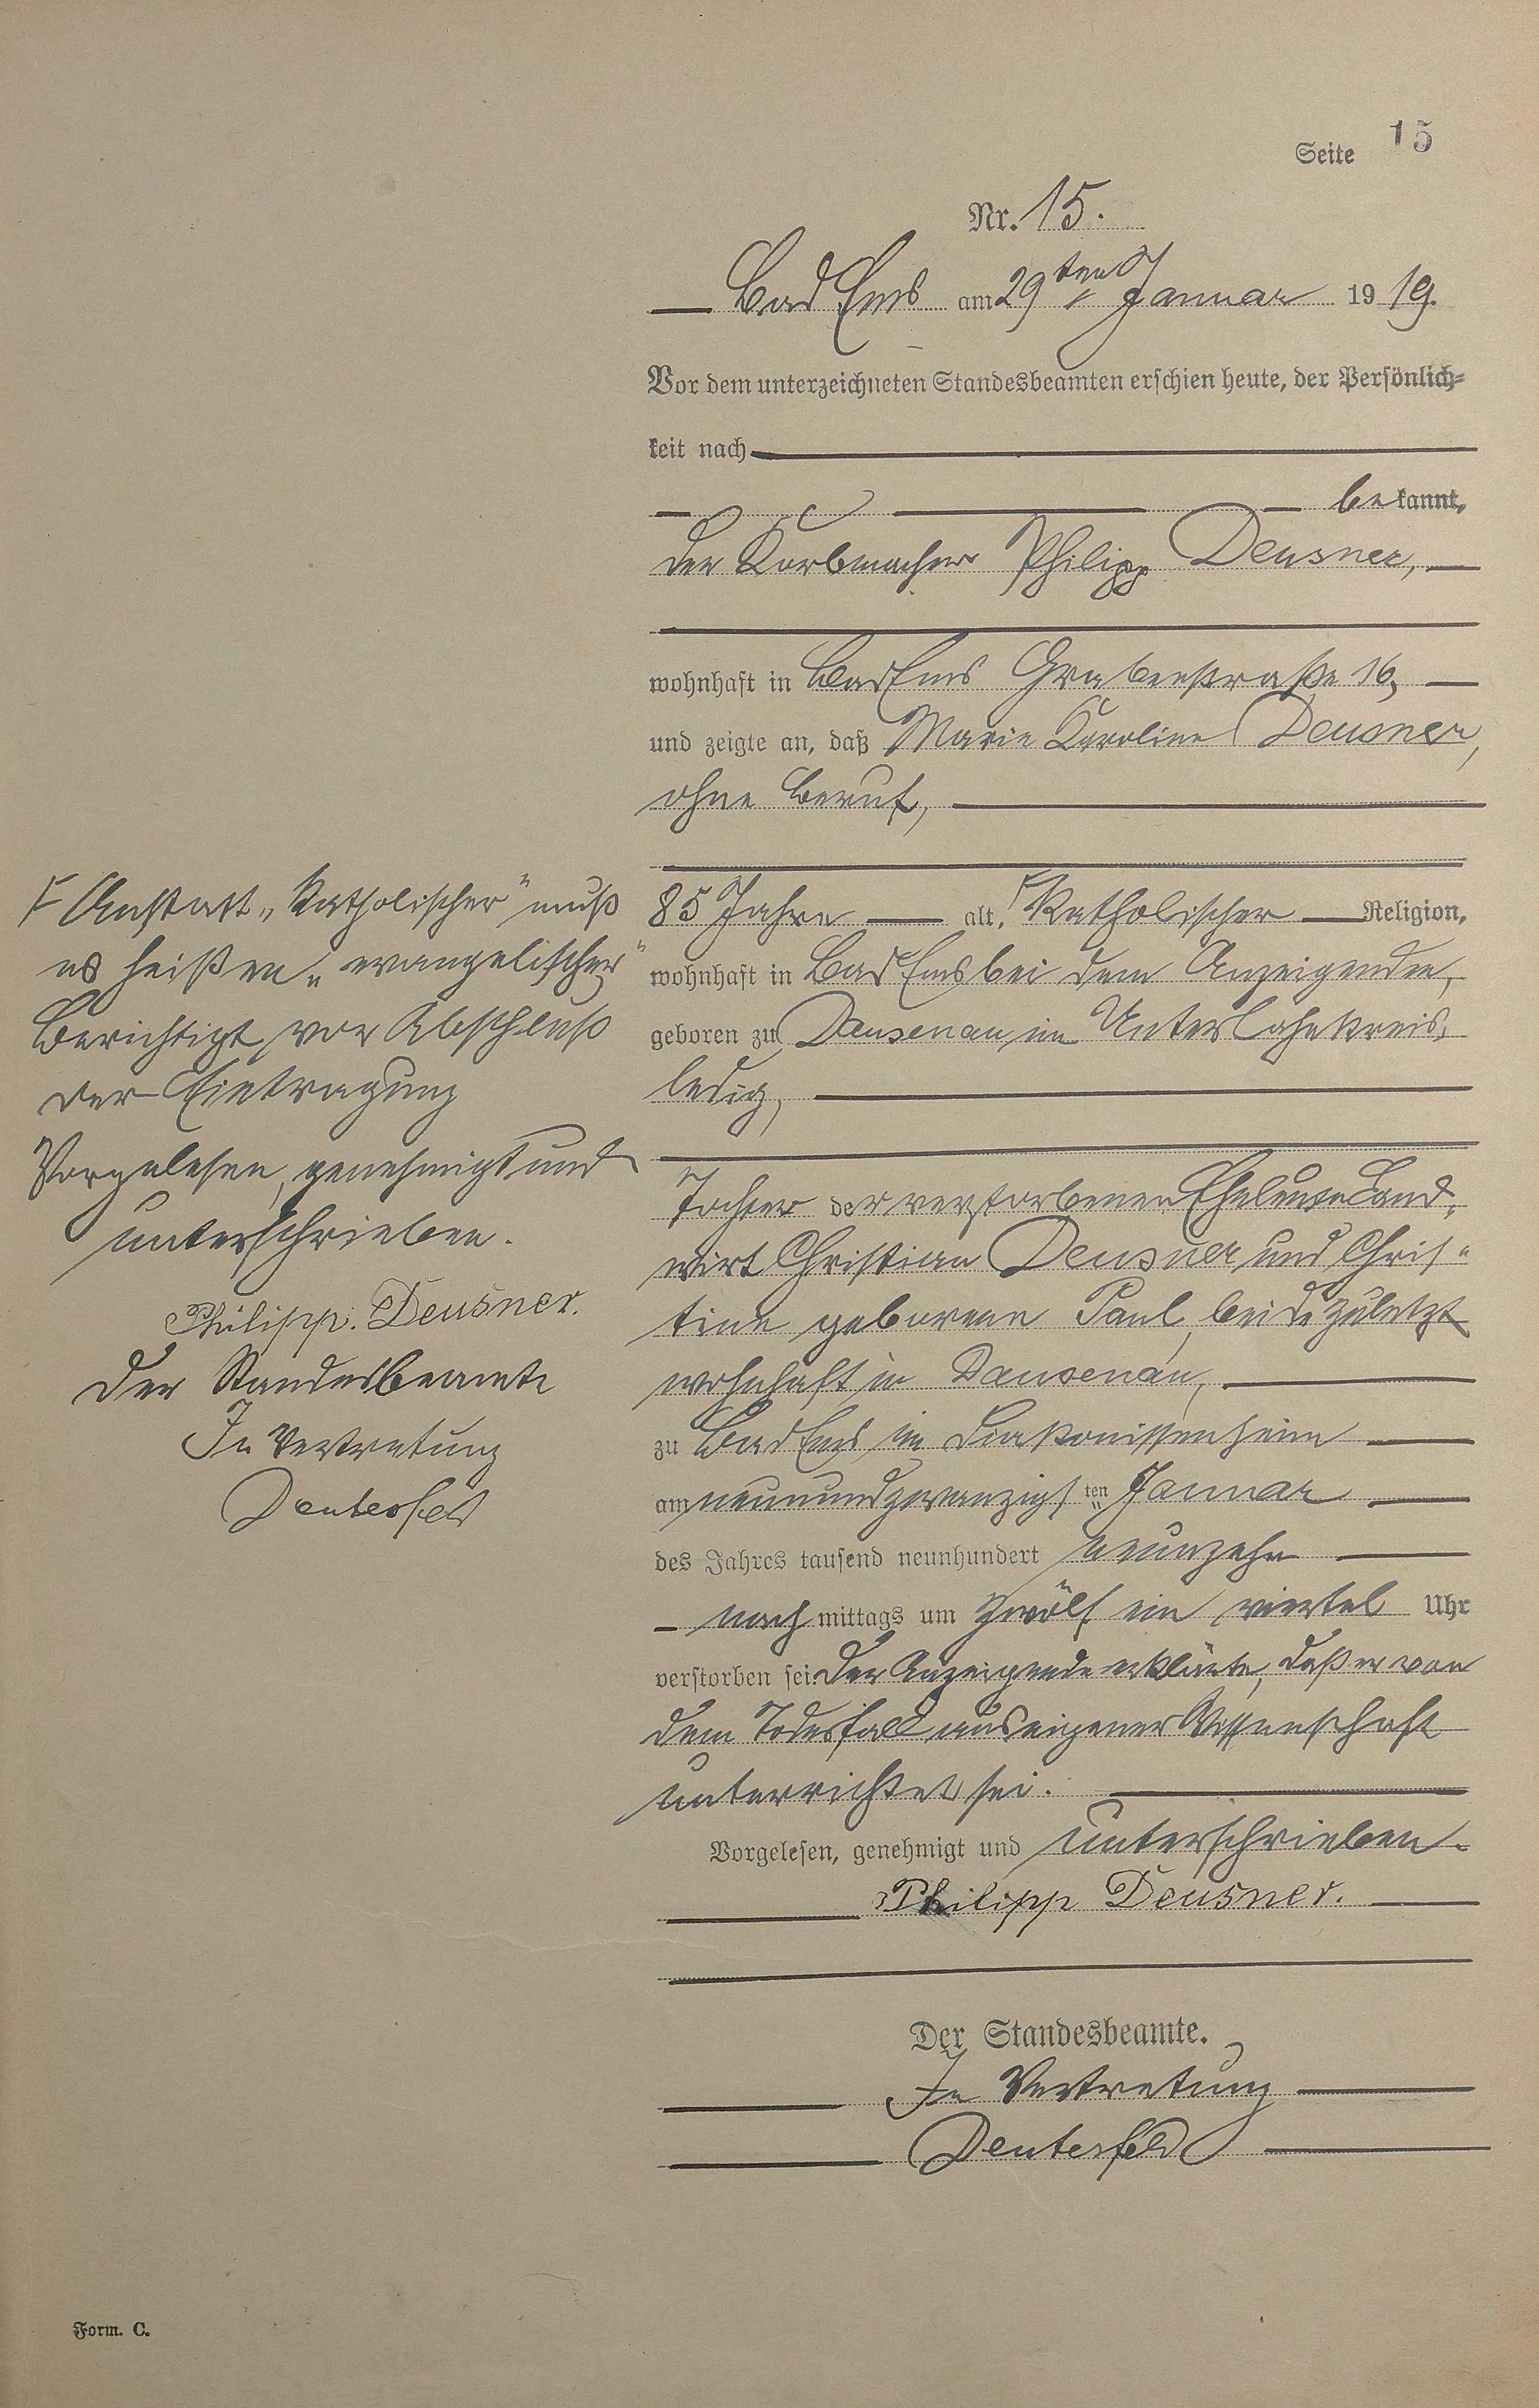 Seite 15
Nr. 15.
Bad Ems am 29ten Januar 1919.
Vor dem unterzeichneten Standesbeamten erschien heute, der Persönlich=
keit nach
bekannt,
der Korbmacher Philipp Deusner,
wohnhaft in Bad Ems Grabenstraße 16,
und zeigte an, daß Marie Karoline Deusner,
ohne Beruf,
85 Jahre alt, Katholischer Religion,
wohnhaft in Bad Ems bei dem Anzeigenden,
geboren zu Dausenau im Unterlahnkreis,
ledig,
Tochter der verstorbenen Eheleute Land-
wirt Christian Deusner und Chris-
tine geborene Paul, beide zuletzt
wohnhaft in Dausenau,
zu Bad Ems im Diakonissenheim
am neunundzwanzigsten Januar
des Jahres tausend neunhundert neunzehn
nachmittags um zwölf ein viertel Uhr
verstorben sei. Der Anzeigende erklärte, daß er von
dem Todesfall aus eigener Wissenschaft
unterrichtet sei.
Vorgelesen, genehmigt und unterschrieben.
Philipp Deusner.
Der Standesbeamte.
In Vertretung
Deutesfeld
Anstatt „Katholischer" muß
es heißen „evangelischer"
Berichtigt vor Abschluß
der Eintragung
Vorgelesen, genehmigt und
unterschrieben.
Philipp. Deusner.
Der Standesbeamte
In Vertretung
Deutesfeld
Form. C.